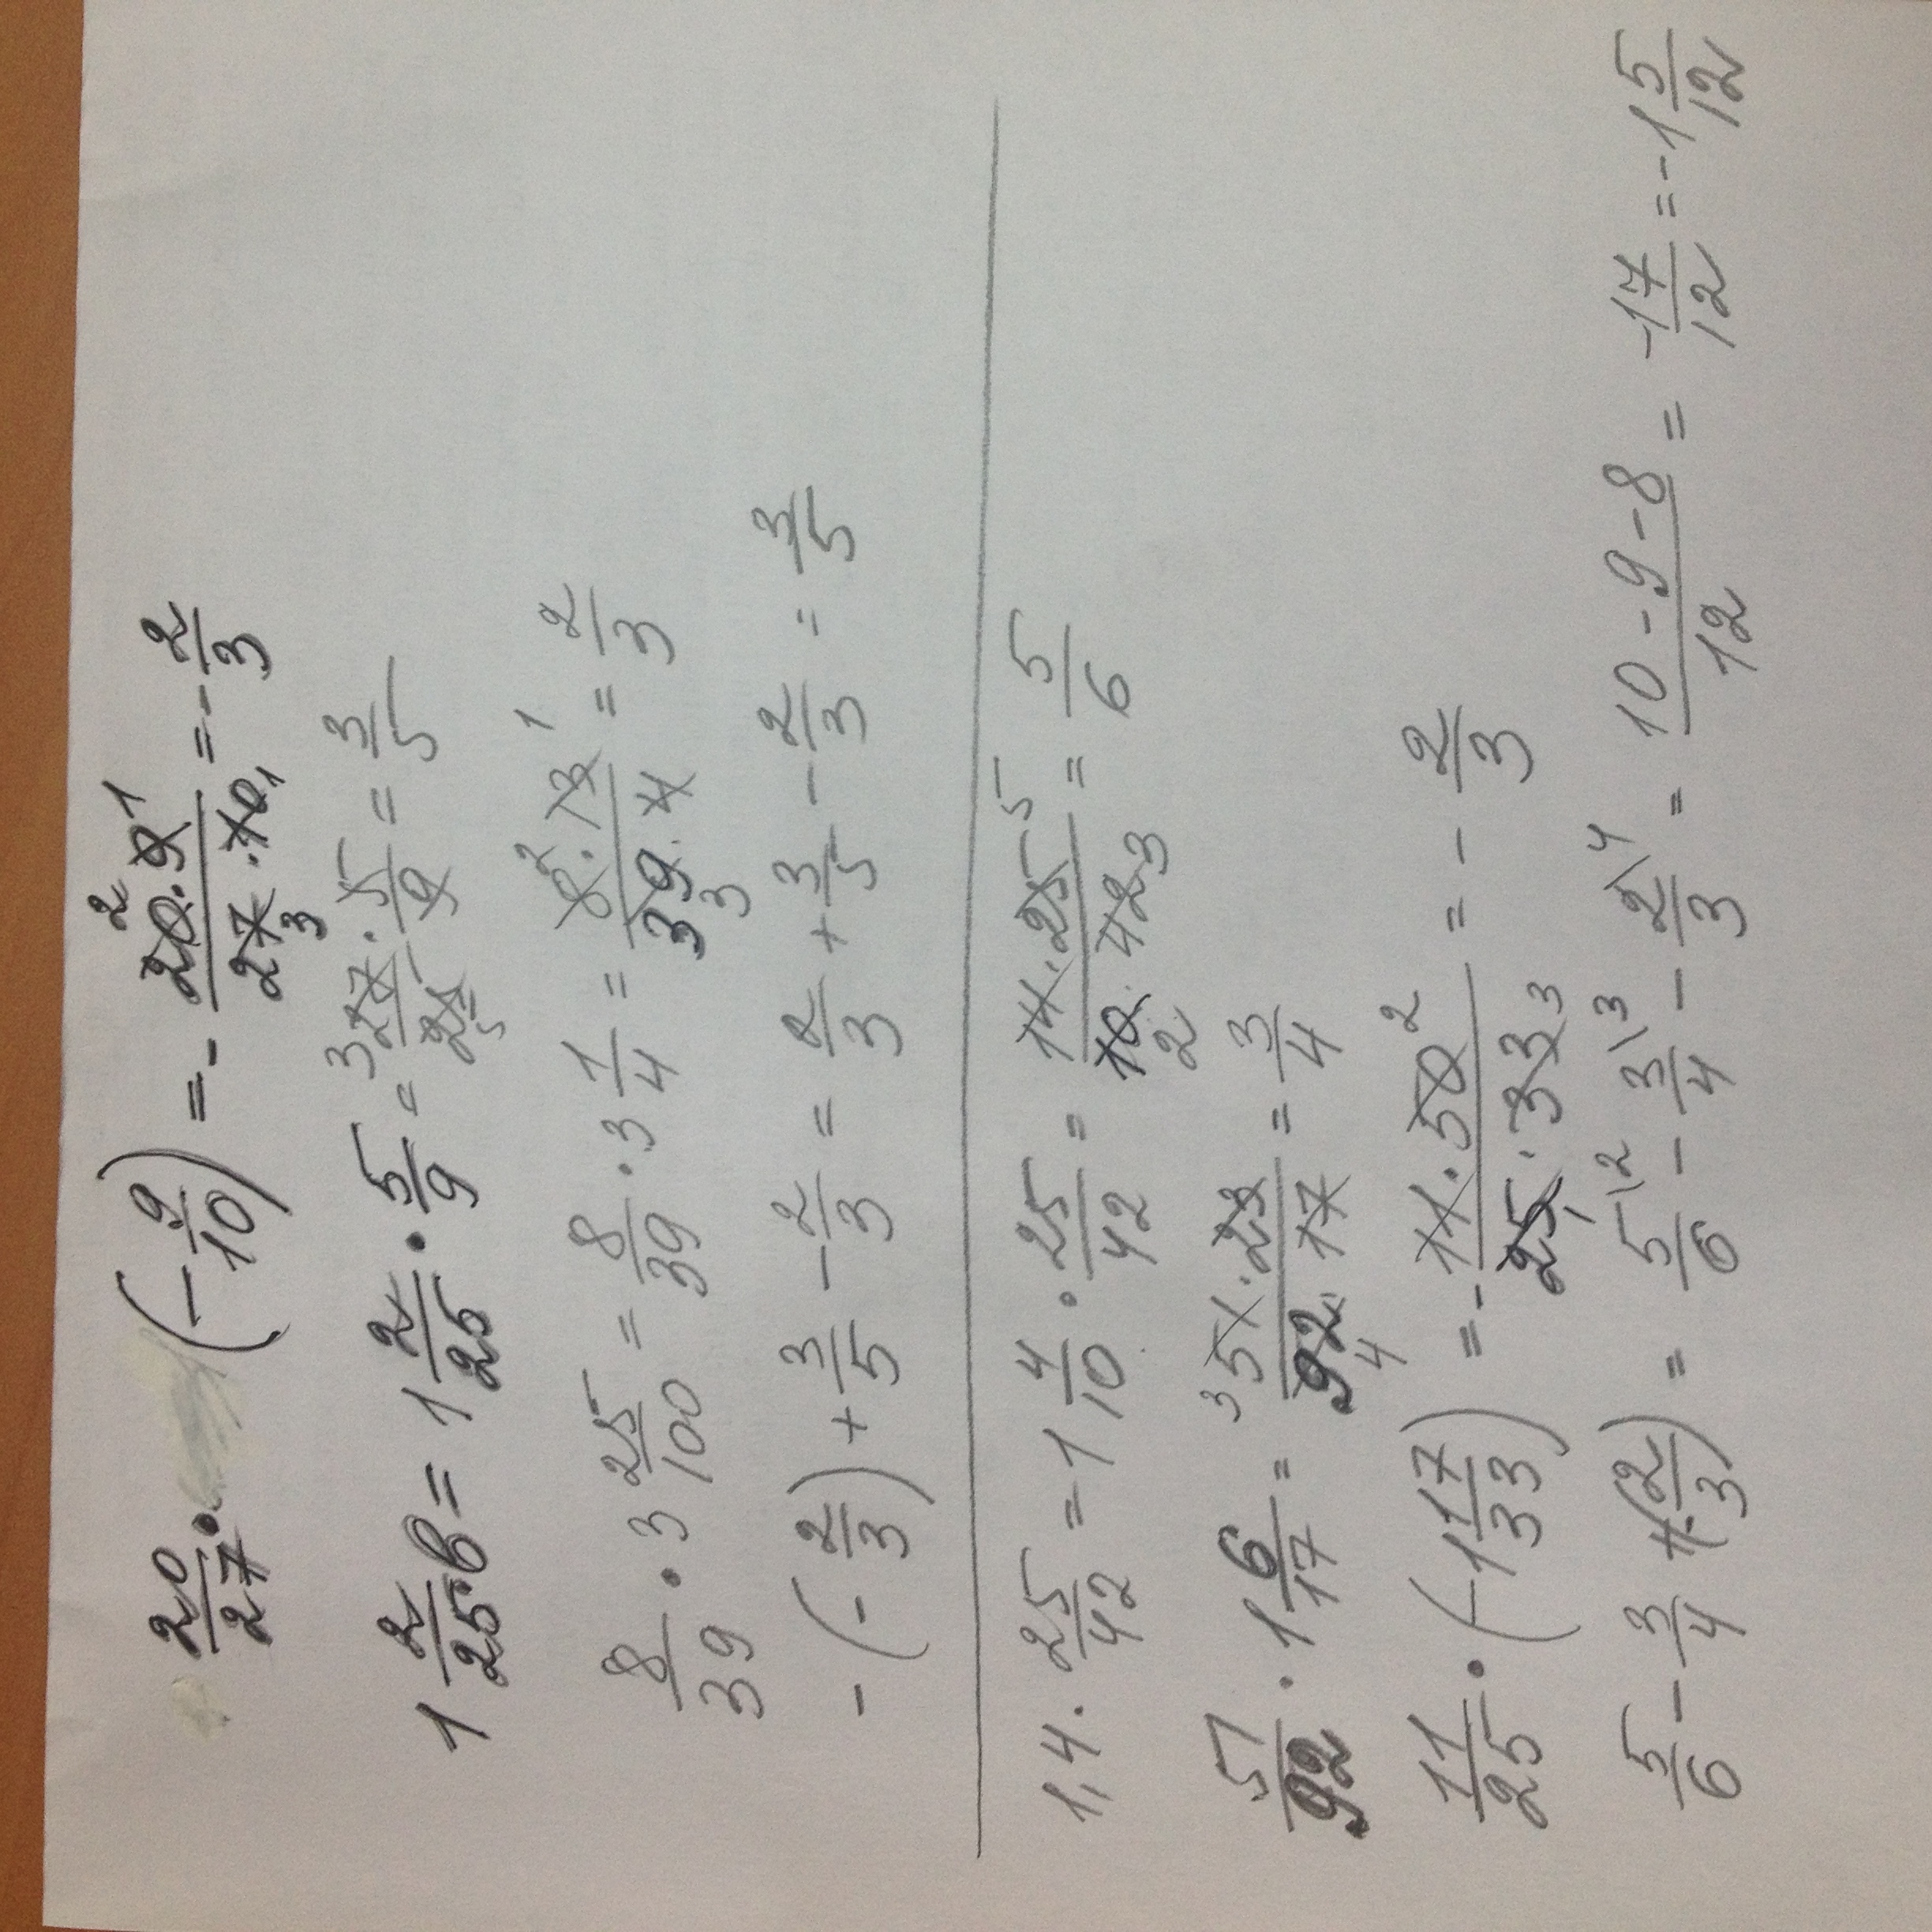 20/27 · (-9/10) = -20·9/27·10 2 1 3 1 = -2/3
1 2/25 · b = 1 2/25 · 5/9 = 27/25 · 5/9 3 5 = 3/5
8/39 · 3 25/100 = 8/39 · 3 1/4 = 8·13/39·4 2 1 3 = 2/3
-(-2/3) + 3/5 - 2/3 = 2/3 + 3/5 - 2/3 = 3/5
1,4 · 25/42 = 1 4/10 · 25/42 = 14·25/10·42 5 2 3 = 5/6
51/92 · 1 6/17 = 51·23/92·17 3 4 = 3/4
11/25 · (-1 17/33) = -11·50/25·33 2 1 3 = -2/3
5/6 - 3/4 + (-2/3) = 5\2/6 - 3\3/4 - 2\4/3 = 10-9-8/12 = -17/12 = -1 5/12